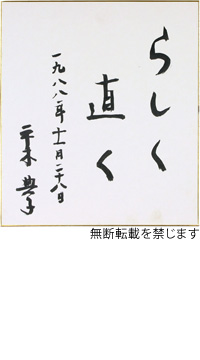 らしく
直く
一九八八年十一月二十八日
平木典子
無断転載を禁じます